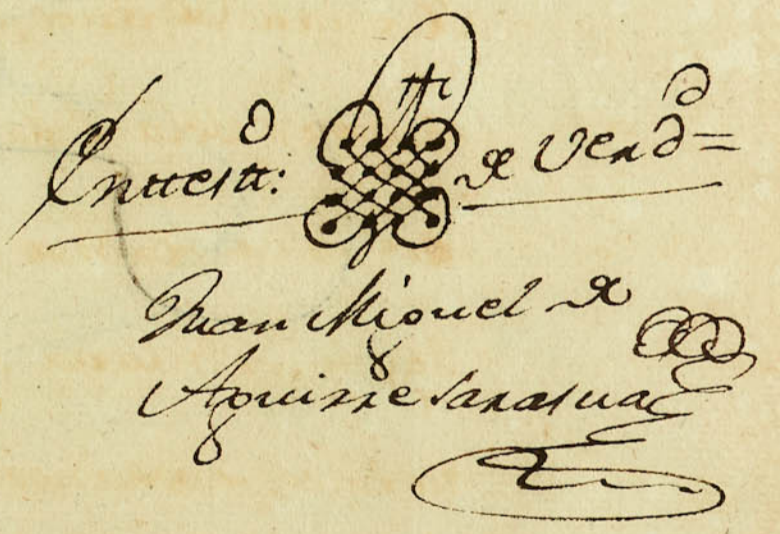 En ttestt:º de Verdd=
Juan Miguel de
Aguirresarasua